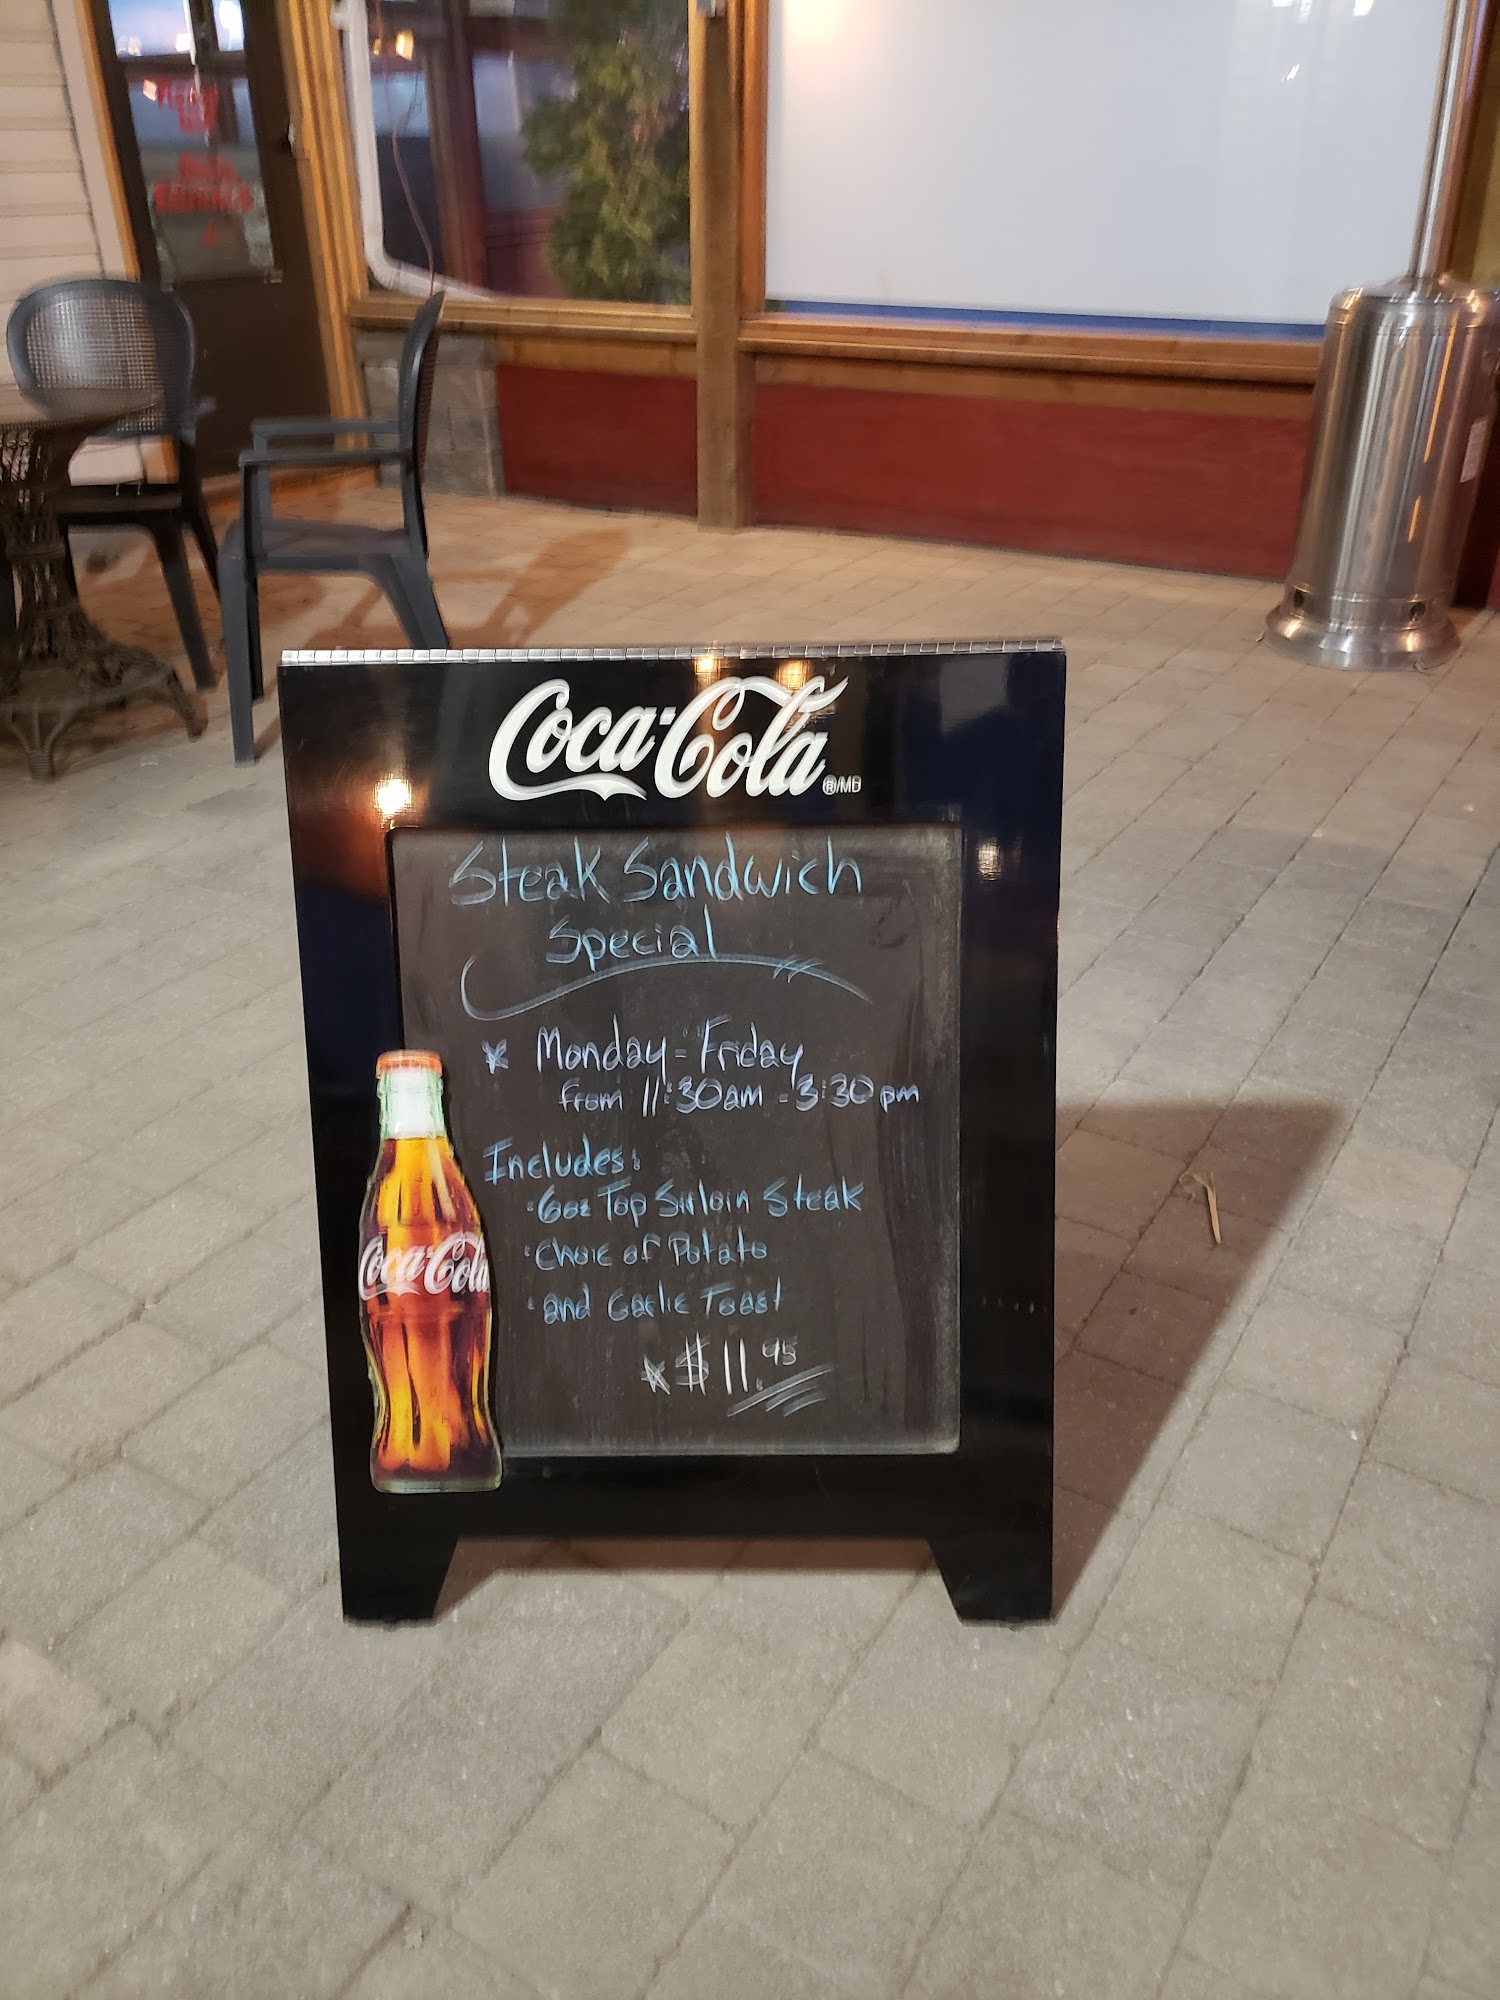 Coca-Cola ®/MD
Steak Sandwich
Special
* Monday - Friday
From 11:30am - 3:30pm
Includes:
· 6oz Top Sirloin Steak
· Choic of Potato
· and Garlic Toast
* $11.95
Coca-Cola
Entrance